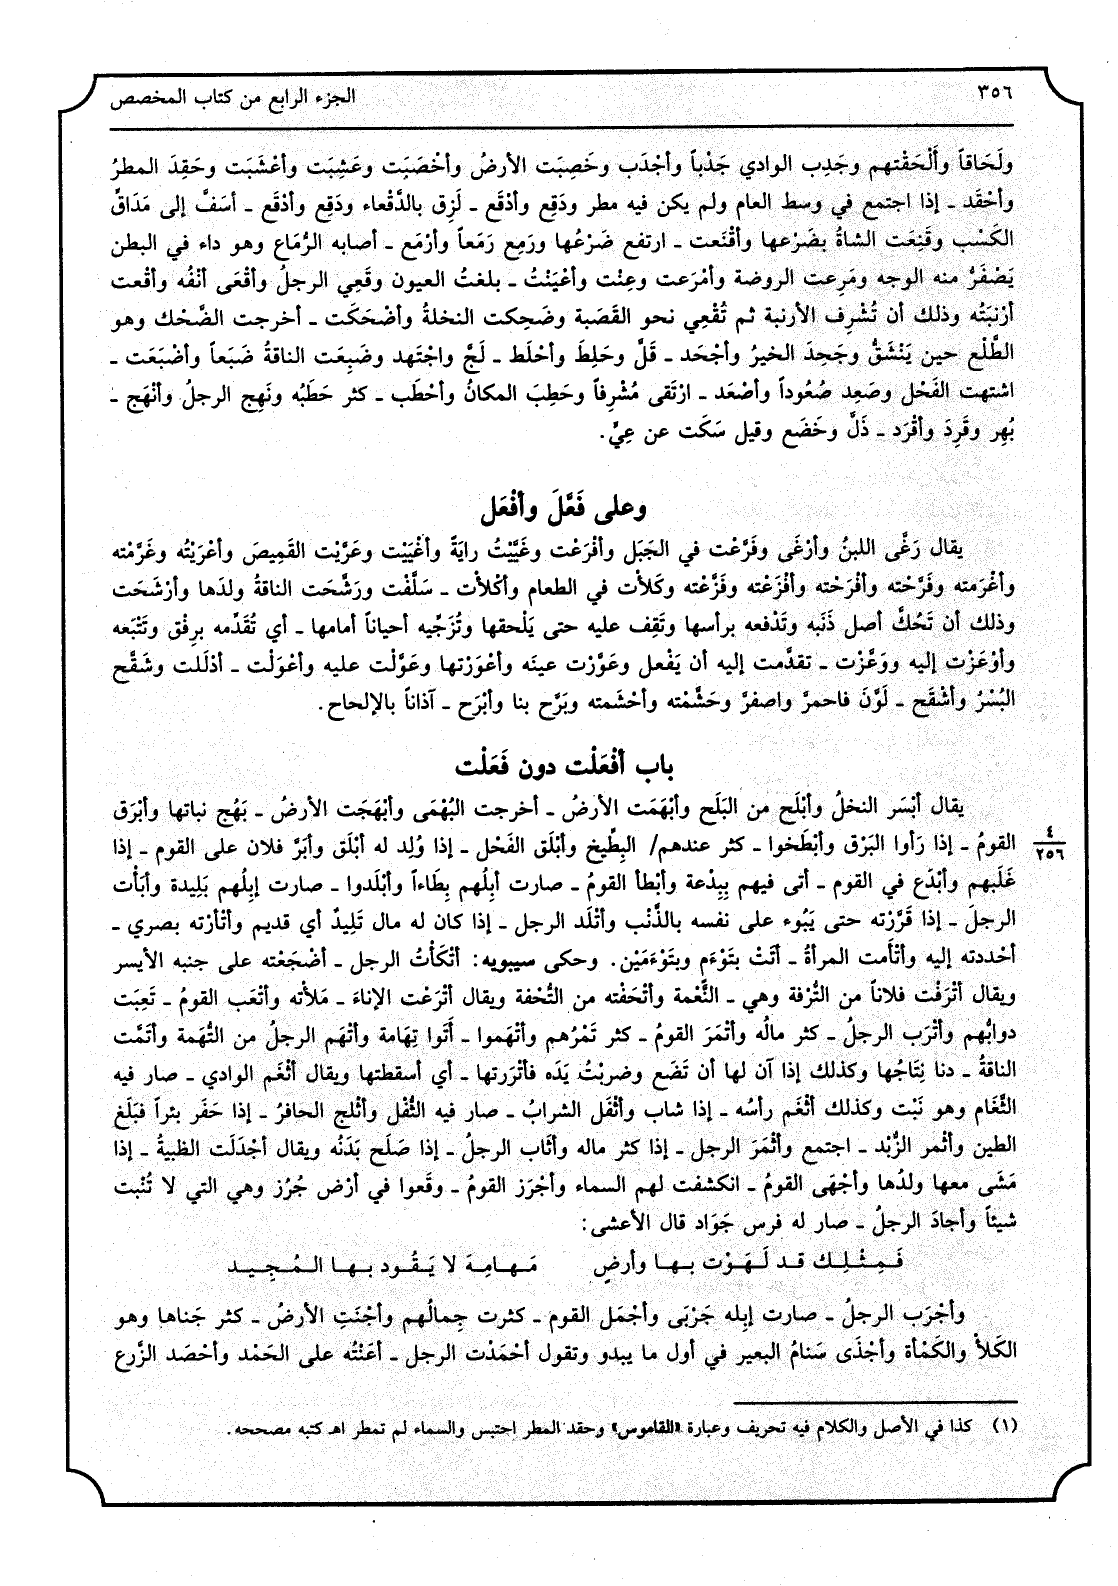 ٣٥٦
الجزء الرابع من كتاب المخصص
ولَحَاقاً وأَلْحَقْتهم وجَدِب الوادي جَدْباً وأجْدَب وخَصِبَت الأرضُ وأخْصَبَت وعَشِبَت وأعْشَبَت وحَقِدَ المطرُ
وأحْقَد ـ إذا اجتمع في وسط العام ولم يكن فيه مطر ودَقِع وأدْقَع ـ لَزِق بالدَّقْعاء ودَقِع وأدْقَع ـ أسَفَّ إلى مَدَاقِّ
الكَسْب وقَنِعَت الشاةُ بِضَرْعها وأقْنَعت ـ ارتفع ضَرْعُها ورَمِع رَمَعاً وأرْمَع ـ أصابه الرُّمَاع وهو داء في البطن
يَصْفَرُّ منه الوجه ومَرِعت الروضة وأمْرَعت وعِنْت وأعْيَنْتُ ـ بلغتُ العيون وقَعِي الرجلُ وأقْعَى أنْفُه وأقْعت
أرْنَبَتُه وذلك أن تُشْرِف الأرنبة ثم تُقْعِي نحو القَصَبة وضَحِكت النخلةُ وأضْحَكَت ـ أخرجت الضَّحْك وهو
الطَّلْع حين يَنْشَقُّ وجَحِدَ الخيرُ وأجْحَد ـ قَلَّ وحَلِطَ وأحْلَط ـ لَجَّ واجْتَهد وضَبِعَت الناقةُ ضَبَعاً وأضْبَعَت ـ
اشتهت الفَحْل وصَعِد صُعُوداً وأصْعَد ـ ارْتَقى مُشْرِفاً وحَطِبَ المكانُ وأحْطَب ـ كثر حَطَبُه ونَهِج الرجلُ وأنْهَج ـ
بُهِر وقَرِدَ وأقْرَد ـ ذَلَّ وخَضَع وقيل سَكَت عن عِيٍّ.
وعلى فَعَّلَ وأفْعَل
يقال رَغَّى اللبنُ وأرْغَى وفَرَّعْت في الجَبَل وأفْرَعْت وغَيَّيْتُ رايَةً وأغْيَيْت وعَرَّيْت القَمِيصَ وأعْرَيْتُه وغَرَّمْته
وأغْرَمته وفَرَّحْته وأفْرَحْته وأفْزَعْته وفَزَّعْته وكَلأْت في الطعام وأكْلأْت ـ سَلَّفْت ورَشَّحَت الناقةُ ولدَها وأرْشَحَت
وذلك أن تَحُكَّ أصل ذَنَبه وتَدْفعه برأسها وتَقِف عليه حتى يَلْحقها وتُزَجِّيه أحياناً أمامها ـ أي تُقَدِّمه بِرِفْق وتَتْبَعه
وأوْعَزْت إليه ووَعَّزْت ـ تقدَّمت إليه أن يَفْعل وعَوَّرْت عينَه وأعْوَرْتها وعَوَّلْت عليه وأعْوَلْت ـ أدْلَلت وشَقَّح
البُسْرُ وأشْقَح ـ لَوَّنَ فاحمرَّ واصفرَّ وحَشَّمْته وأحْشَمته وبَرَّح بنا وأبْرَح ـ آذاناً بالإلحاح.
باب أفْعَلْت دون فَعَلْت
يقال أبْسَر النخلُ وأبْلَح من البَلَح وأبْهَمَت الأرضُ ـ أخرجت البُهْمَى وأبْهَجَت الأرضُ ـ بَهُج نباتها وأبْرَق
القومُ ـ إذا رَأوا البَرْق وأبْطَخوا ـ كثر عندهم/ البِطِّيخ وأبْلَق الفَحْل ـ إذا وُلِد له أبْلَق وأبَرَّ فلان على القوم ـ إذا
٤
٢٥٦
غَلَبهم وأبْدَع في القوم ـ أتى فيهم بِبِدْعة وأبْطأ القومُ ـ صارت أبِلُهم بِطَاءاً وأبْلَدوا ـ صارت إبِلُهم بَلِيدة وأبَأْت
الرجلَ ـ إذا قَرَّرْته حتى يَبُوء على نفسه بالذَّنْب وأتْلَد الرجل ـ إذا كان له مال تَلِيدٌ أي قديم وأتْأرْته بصري ـ
أحْددته إليه وأتْأَمت المرأةُ ـ أتَتْ بتَوْءَمٍ وبتَوْءَمَيْن. وحكى سيبويه: أتْكَأتُ الرجل ـ أضْجَعْته على جنبه الأيسر
ويقال أتْرَفْت فلاناً من التُّرْفة وهي ـ النَّعْمة وأتْحَفْته من التُّحْفة ويقال أتْرَعْت الإناءَ ـ مَلأته وأتْعَب القومُ ـ تَعِبَت
دوابُّهم وأتْرَب الرجلُ ـ كثر مالُه وأتْمَرَ القومُ ـ كثر تَمْرُهم وأتْهَموا ـ أَتَوا تِهَامة وأتْهَم الرجلُ من التُّهَمة وأتَمَّت
الناقةُ ـ دنا نِتَاجُها وكذلك إذا آن لها أن تَضَع وضربْتُ يَدَه فأتْرَرتها ـ أي أسقطتها ويقال أثْغَم الوادي ـ صار فيه
الثَّغَام وهو نَبْت وكذلك أثْغَم رأسُه ـ إذا شاب وأثْفَل الشرابُ ـ صار فيه الثُّفْل وأثْلج الحافرُ ـ إذا حَفَر بئراً فبَلَغ
الطين وأثْمر الزُّبْد ـ اجتمع وأثْمَرَ الرجل ـ إذا كثر ماله وأثَاب الرجلُ ـ إذا صَلَح بَدَنُه ويقال أجْدَلَت الظبيةُ ـ إذا
مَشَى معها ولدُها وأجْهَى القومُ ـ انكشفت لهم السماء وأجْرَز القومُ ـ وقَعوا في أرْض جُرُز وهي التي لا تُنْبت
شيئاً وأجادَ الرجلُ ـ صار له فرس جَوَاد قال الأعشى:
فَـمِـثْـلِـك قـد لَـهَـوْت بـهـا وأرضٍ مَـهـامِـهَ لا يَـقُـود بـهـا الـمُـجِـيـد
وأجْرَب الرجلُ ـ صارت إبِله جَرْبَى وأجْمَل القوم ـ كثرت جِمالُهم وأجْنَتِ الأرضُ ـ كثر جَناها وهو
الكَلأُ والكَمْأة وأجْذَى سَنامُ البعير في أول ما يبدو وتقول أحْمَدْت الرجل ـ أعَنْتُه على الحَمْد وأحْصَد الزَّرع
(١) كذا في الأصل والكلام فيه تحريف وعبارة «القاموس» وحقد المطر احتبس والسماء لم تمطر اهـ كتبه مصححه.